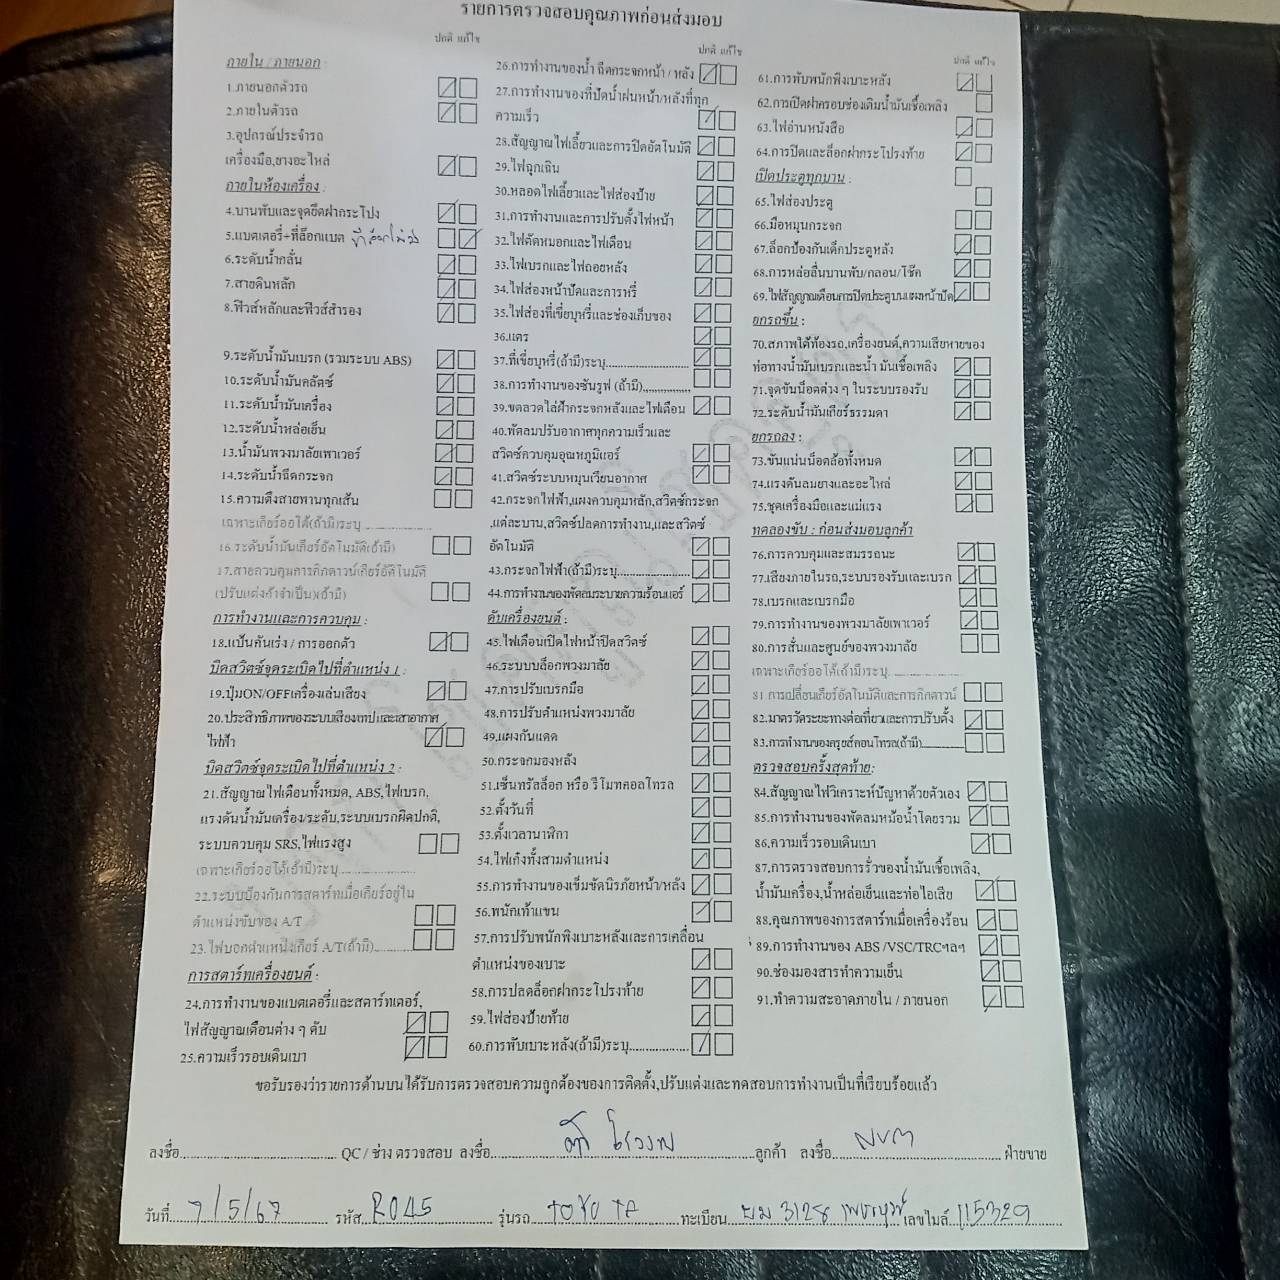 รายการตรวจสอบคุณภาพก่อนส่งมอบ
ปกติ แก้ไข
ภายใน / ภายนอก :
1.ภายนอกตัวรถ
2.ภายในตัวรถ
3.อุปกรณ์ประจำรถ
เครื่องมือ,ยางอะไหล่
ภายในห้องเครื่อง :
4.บานพับและจุดยึดฝากระโปง
5.แบตเตอรี่+ที่ล็อกแบต
6.ระดับน้ำกลั่น
7.สายดินหลัก
8.ฟิวส์หลักและฟิวส์สำรอง
9.ระดับน้ำมันเบรก (รวมระบบ ABS)
10.ระดับน้ำมันคลัตซ์
11.ระดับน้ำมันเครื่อง
12.ระดับน้ำหล่อเย็น
13.น้ำมันพวงมาลัยเพาเวอร์
14.ระดับน้ำฉีดกระจก
15.ความตึงสายพานทุกเส้น
เฉพาะเกียร์ออโต้(ถ้ามี)ระบุ
16.ระดับน้ำมันเกียร์อัตโนมัติ(ถ้ามี)
17.สายควบคุมการคิกดาวน์เกียร์อัติโนมัติ
(ปรับแต่งถ้าจำเป็น)(ถ้ามี)
การทำงานและการควบคุม :
18.แป้นคันเร่ง / การออกตัว
บิดสวิตซ์จุดระเบิดไปที่ตำแหน่ง 1 :
19.ปุ่มON/OFFเครื่องเล่นเสียง
20.ประสิทธิภาพของระบบเสียงเทปและเสาอากาศ
ไฟฟ้า
บิดสวิตซ์จุดระเบิดไปที่ตำแหน่ง 2 :
21.สัญญาณไฟเตือนทั้งหมด, ABS,ไฟเบรก,
แรงดันน้ำมันเครื่อง/ระดับ,ระบบเบรกผิดปกติ,
ระบบควบคุม SRS,ไฟแรงสูง
เฉพาะเกียร์ออโต้(ถ้ามี)ระบุ
22.ระบบป้องกันการสตาร์ทเมื่อเกียร์อยู่ใน
ตำแหน่งขับของ A/T
23.ไฟบอกตำแหน่งเกียร์ A/T(ถ้ามี)
การสตาร์ทเครื่องยนต์ :
24.การทำงานของแบตเตอรี่และสตาร์ทเตอร์,
ไฟสัญญาณเตือนต่าง ๆ ดับ
25.ความเร็วรอบเดินเบา
ปกติ แก้ไข
26.การทำงานของน้ำ ฉีดกระจกหน้า / หลัง
27.การทำงานของที่ปัดน้ำฝนหน้า/หลังที่ทุก
ความเร็ว
28.สัญญาณไฟเลี้ยวและการปิดอัตโนมัติ
29.ไฟฉุกเฉิน
30.หลอดไฟเลี้ยวและไฟส่องป้าย
31.การทำงานและการปรับตั้งไฟหน้า
32.ไฟตัดหมอกและไฟเดือน
33.ไฟเบรกและไฟถอยหลัง
34.ไฟส่องหน้าปัดและการหรี่
35.ไฟส่องที่เขี่ยบุหรี่และช่องเก็บของ
36.แตร
37.ที่เขี่ยบุหรี่(ถ้ามี)ระบุ
38.การทำงานของซันรูฟ (ถ้ามี)
39.ขดลวดไล่ฝ้ากระจกหลังและไฟเตือน
40.พัดลมปรับอากาศทุกความเร็วและ
สวิตซ์ควบคุมอุณหภูมิแอร์
41.สวิตซ์ระบบหมุนเวียนอากาศ
42.กระจกไฟฟ้า,แผงควบคุมหลัก,สวิตซ์กระจก
,แต่ละบาน,สวิตซ์ปลดการทำงาน,และสวิตซ์
อัตโนมัติ
43.กระจกไฟฟ้า(ถ้ามี)ระบุ
44.การทำงานของพัดลมระบายความร้อนแอร์
ดับเครื่องยนต์ :
45.ไฟเตือนเปิดไฟหน้าปิดสวิตซ์
46.ระบบบล็อกพวงมาลัย
47.การปรับเบรกมือ
48.การปรับตำแหน่งพวงมาลัย
49.แผงกันแดด
50.กระจกมองหลัง
51.เซ็นทรัลล็อก หรือ รีโมทคอลโทรล
52.ตั้งวันที่
53.ตั้งเวลานาฬิกา
54.ไฟเก๋งทั้งสามตำแหน่ง
55.การทำงานของเข็มขัดนิรภัยหน้า/หลัง
56.พนักเท้าแขน
57.การปรับพนักพิงเบาะหลังและการเคลื่อน
ตำแหน่งของเบาะ
58.การปลดล็อกฝากระโปรงท้าย
59.ไฟส่องป้ายท้าย
60.การพับเบาะหลัง(ถ้ามี)ระบุ
ปกติ แก้ไข
61.การพับพนักพิงเบาะหลัง
62.การเปิดฝาครอบช่องเติมน้ำมันเชื้อเพลิง
63.ไฟอ่านหนังสือ
64.การปิดและล็อกฝากระโปรงท้าย
เปิดประตูทุกบาน :
65.ไฟส่องประตู
66.มือหมุนกระจก
67.ล็อกป้องกันเด็กประตูหลัง
68.การหล่อลื่นบานพับ/กลอน/โช๊ค
69.ไฟสัญญาณเตือนการปิดประตูบนแผงหน้าปัด
ยกรถขึ้น :
70.สภาพใต้ท้องรถ,เครื่องยนต์,ความเสียหายของ
ท่อทางน้ำมันเบรกและน้ำ มันเชื้อเพลิง
71.จุดขันน็อตต่าง ๆ ในระบบรองรับ
72.ระดับน้ำมันเกียร์ธรรมดา
ยกรถลง :
73.ขันแน่นน็อตล้อทั้งหมด
74.แรงดันลมยางและอะไหล่
75.ชุดเครื่องมือและแม่แรง
ทดลองขับ : ก่อนส่งมอบลูกค้า
76.การควบคุมและสมรรถนะ
77.เสียงภายในรถ,ระบบรองรับและเบรก
78.เบรกและเบรกมือ
79.การทำงานของพวงมาลัยเพาเวอร์
80.การสั่นและศูนย์ของพวงมาลัย
เฉพาะเกียร์ออโต้(ถ้ามี)ระบุ
81.การเปลี่ยนเกียร์อัตโนมัติและการคิกดาวน์
82.มาตรวัดระยะทางต่อเที่ยวและการปรับตั้ง
83.การทำงานของครุยส์คอนโทรล(ถ้ามี)
ตรวจสอบครั้งสุดท้าย:
84.สัญญาณไฟวิเคราะห์ปัญหาด้วยตัวเอง
85.การทำงานของพัดลมหม้อน้ำโดยรวม
86.ความเร็วรอบเดินเบา
87.การตรวจสอบการรั่วของน้ำมันเชื้อเพลิง,
น้ำมันเครื่อง,น้ำหล่อเย็นและท่อไอเสีย
88.คุณภาพของการสตาร์ทเมื่อเครื่องร้อน
89.การทำงานของ ABS /VSC/TRCฯลฯ
90.ช่องมองสารทำความเย็น
91.ทำความสะอาดภายใน / ภายนอก
ขอรับรองว่ารายการด้านบน ได้รับการตรวจสอบความถูกต้องของการติดตั้ง,ปรับแต่งและทดสอบการทำงานเป็นที่เรียบร้อยแล้ว
ลงชื่อ QC / ช่าง ตรวจสอบ ลงชื่อ ลูกค้า ลงชื่อ ฝ่ายขาย
วันที่ 7/5/67 รหัส R045 รุ่นรถ TOYOTA ทะเบียน 3128 เลขไมล์ 115329